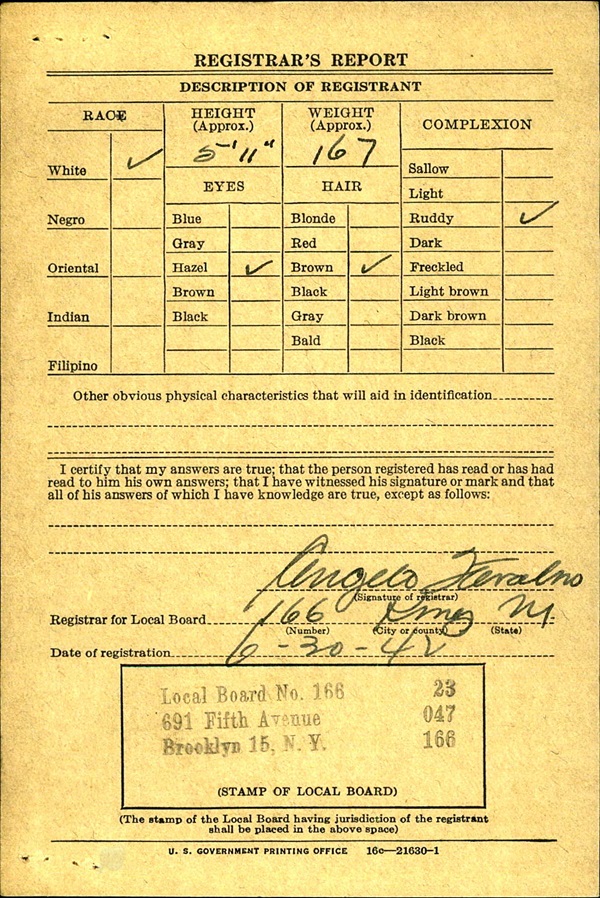 REGISTRAR'S REPORT
DESCRIPTION OF REGISTRANT
RACE
White ✓
Negro
Oriental
Indian
Filipino
HEIGHT
(Approx.)
5'11"
WEIGHT
(Approx.)
167
EYES
Blue
Gray
Hazel ✓
Brown
Black
HAIR
Blonde
Red
Brown ✓
Black
Gray
Bald
COMPLEXION
Sallow
Light
Ruddy ✓
Dark
Freckled
Light brown
Dark brown
Black
Other obvious physical characteristics that will aid in identification
I certify that my answers are true; that the person registered has read or has had
read to him his own answers; that I have witnessed his signature or mark and that
all of his answers of which I have knowledge are true, except as follows:
Angelo
(Signature of registrar)
Registrar for Local Board 166 Kings
(Number) (City or county) (State)
Date of registration 6-30-42
Local Board No. 166 23
691 Fifth Avenue 047
Brooklyn 15, N. Y. 166
(STAMP OF LOCAL BOARD)
(The stamp of the Local Board having jurisdiction of the registrant
shall be placed in the above space)
U. S. GOVERNMENT PRINTING OFFICE 16c—21630-1